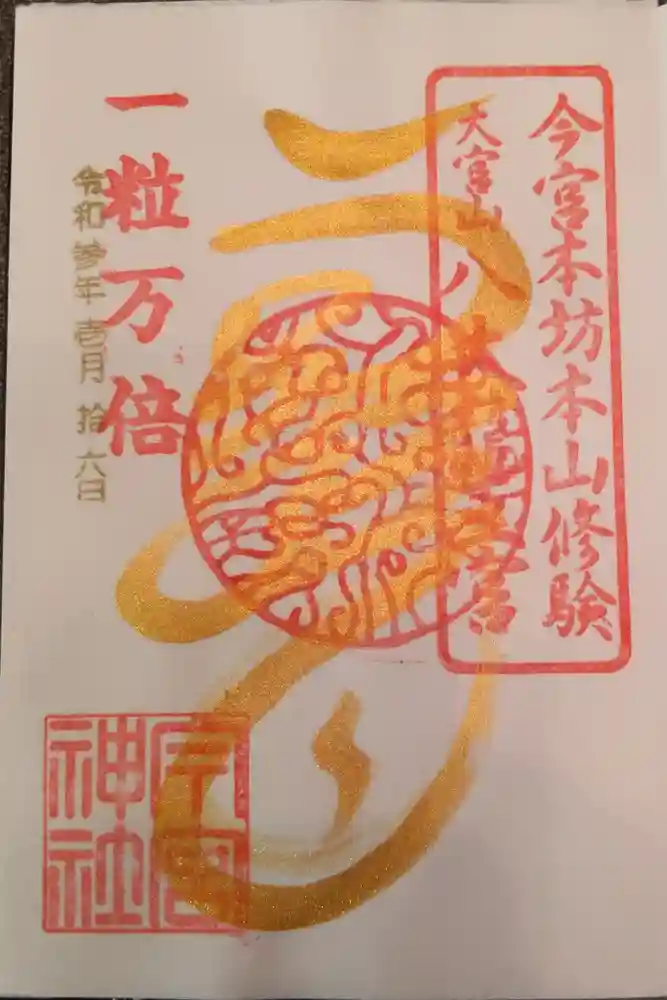 今宮本坊本山修験
大宮山八大龍王宮
一粒万倍
令和参年壱月拾六日
今宮
神社